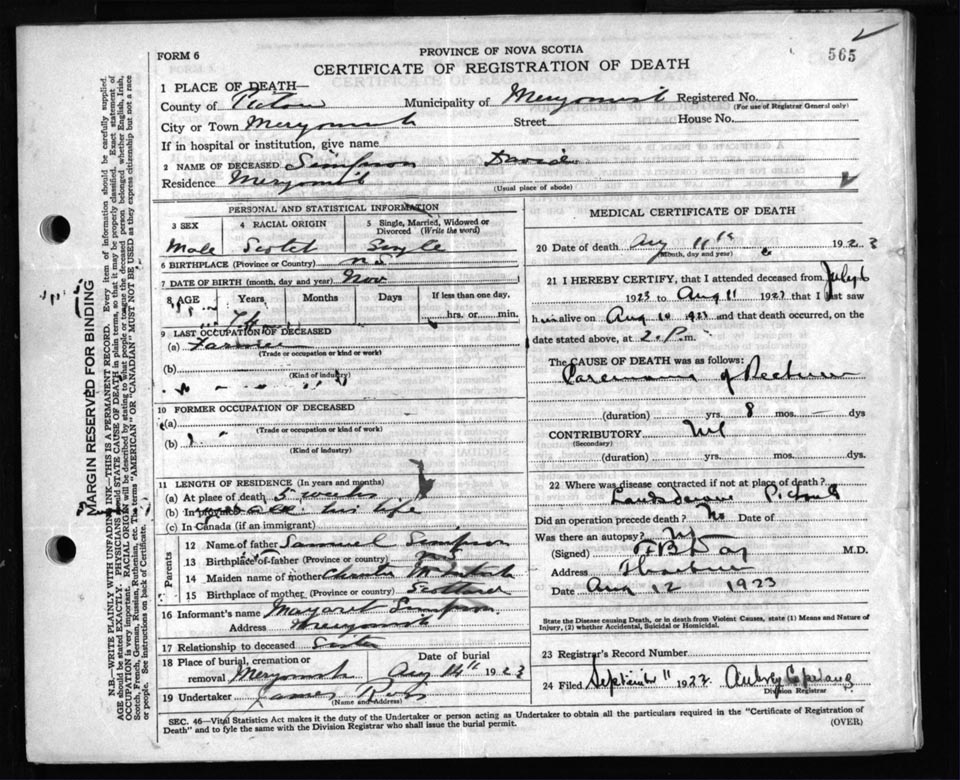 565
FORM 6
PROVINCE OF NOVA SCOTIA
CERTIFICATE OF REGISTRATION OF DEATH
1 PLACE OF DEATH—
County of Pictou Municipality of Merigomish Registered No.
(For use of Registrar General only)
City or Town Merigomish Street House No.
If in hospital or institution, give name
2 NAME OF DECEASED Simpson David
Residence Merigomish
(Usual place of abode)
PERSONAL AND STATISTICAL INFORMATION
3 SEX 4 RACIAL ORIGIN 5 Single, Married, Widowed or Divorced (Write the word)
Male Scotch Single
6 BIRTHPLACE (Province or Country) N.S.
7 DATE OF BIRTH (month, day and year) Nov
8 AGE Years Months Days If less than one day,
hrs. or min.
9 LAST OCCUPATION OF DECEASED
(a) Farmer
(Trade or occupation or kind or work)
(b)
(Kind of industry)
10 FORMER OCCUPATION OF DECEASED
(a)
(Trade or occupation or kind or work)
(b)
(Kind of industry)
11 LENGTH OF RESIDENCE (In years and months)
(a) At place of death 5 weeks
(b) In all his life
(c) In Canada (if an immigrant)
Parents
12 Name of father Samuel Simpson
13 Birthplace of father (Province or country)
14 Maiden name of mother
15 Birthplace of mother (Province or country) Scotland
16 Informant's name Margaret Simpson
Address Merigomish
17 Relationship to deceased Sister
18 Place of burial, cremation or removal Merigomish Date of burial Aug 14th 1923
19 Undertaker James Ross
(Name and Address)
MEDICAL CERTIFICATE OF DEATH
20 Date of death Aug 11th 1923
(Month, day and year)
21 I HEREBY CERTIFY, that I attended deceased from July 6
1923 to Aug 11 1923 that I last saw
him alive on Aug 10 1923 and that death occurred, on the
date stated above, at 2. P. m.
The CAUSE OF DEATH was as follows:
Carcinoma of Rectum
(duration) yrs. 8 mos. — dys
CONTRIBUTORY Nil
(Secondary)
(duration) yrs. mos. dys.
22 Where was disease contracted if not at place of death?
Lansdowne Pictou Co
Did an operation precede death? No Date of
Was there an autopsy? No
(Signed) F B Day M.D.
Address Thorburn
Date Aug 12 1923
State the Disease causing Death, or in death from Violent Causes, state (1) Means and Nature of
Injury, (2) whether Accidental, Suicidal or Homicidal.
23 Registrar's Record Number
24 Filed September 11 192
Division Registrar
SEC. 46—Vital Statistics Act makes it the duty of the Undertaker or person acting as Undertaker to obtain all the particulars required in the "Certificate of Registration of
Death" and to fyle the same with the Division Registrar who shall issue the burial permit.
(OVER)
MARGIN RESERVED FOR BINDING
N.B.—WRITE PLAINLY WITH UNFADING INK—THIS IS A PERMANENT RECORD. Every item of information should be carefully supplied.
AGE should be stated EXACTLY. PHYSICIANS should STATE CAUSE OF DEATH in plain terms, so that it may be properly classified. Exact statement of
OCCUPATION is very important. RACIAL ORIGIN will be described by stating to what people or tongue the deceased person belonged whether English, Irish,
Scotch, French, German, Russian, Ruthenian, etc. The terms "AMERICAN" OR "CANADIAN" MUST NOT BE USED as they express citizenship but not a race
or people. See instructions on back of Certificate.